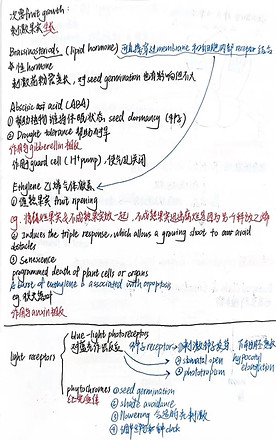 次要fruit growth:
刺激果实生长
Brassinosteroids (lipid hormone) 可直接穿过membrane 和细胞内的受体结合
女性hormone
刺激花粉管生长, 对seed germination 也有影响但不大
Abscisic acid (ABA)
① 帮助植物维持休眠状态, seed dormancy (种子)
② Drought tolerance 帮助耐旱
作用与gibberellin拮抗
作用guard cell (H⁺pump), 使气孔关闭
Ethylene 乙烯气体激素
① 促进果实 fruit ripening
eg. 将成熟果实和不成熟果实放一起, 不成熟果实迅速成熟
② Induces the triple response, which allows a growing shoot to avoid
obstacles
③ Senescence
programmed death of plant cells or organs
A burst of ethylene is associated with apoptosis
eg. 秋天落叶
作用与auxin拮抗
blue-light photoreceptors
对蓝光作出反应
light receptors
receptor
① 刺激种子发芽
② stomatal open
③ phototropism
hypocotyl
elongation
phytochromes
红光受体
① seed germination
② shade avoidance
③ flowering 合适的光刺激
④ clock